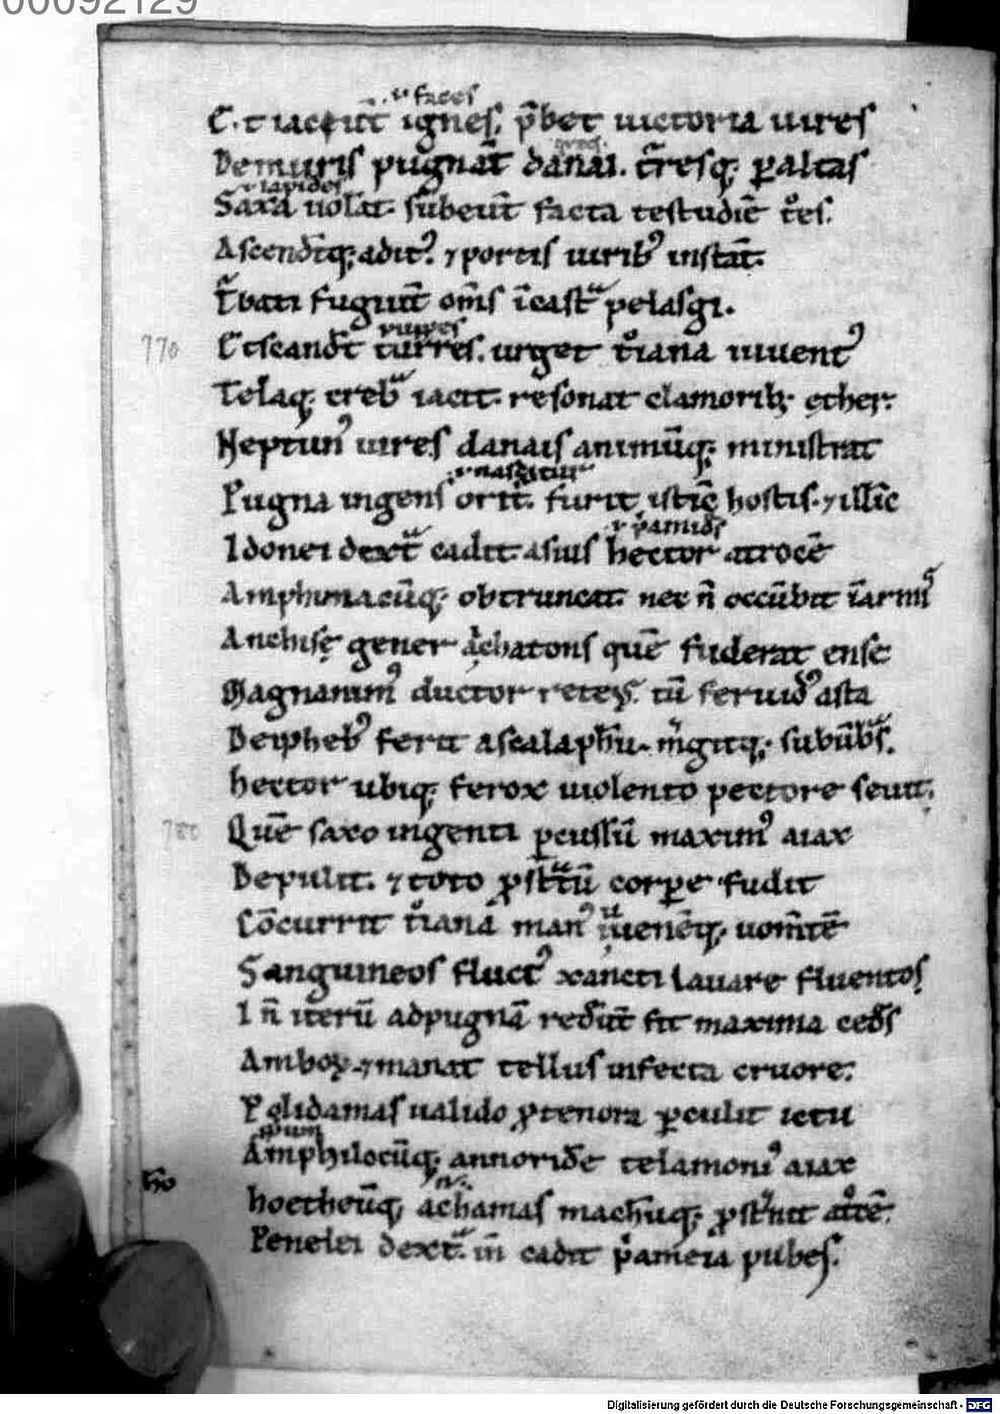 00092129
.i. faces
Et iaciūt ignes. p̄bet uictoria uires
Demuris pugnāt danai. t̄resq; ꝑaltas
.i. lapides
Saxa uolāt. subeūt facta testudiē t̊es.
Ascendt̄q; adit᷒. ⁊ portis uirib᷒ instāt.
t̄bati fugiūt om̄s īcastͣ pelasgi.
puppes
770 Etscandt̄ turres. urget t̊iana iuuent᷒
Telaq; crebͣ iacit. resonat clamorib; ęther.
Neptun᷒ uires danais animūq; ministrat
.i. nascitur
Pugna ingens orit᷑. furit istīc hostis. ⁊ illīc
Idonei dextͣ cadit asius hector atrocē
Amphimacūq; obtruncat. nec n̄ occūbit īarmis
Anchisę gener achatous quē fuderat ense
Magnanim᷒ ductor reteꝝ. tū feruid᷒ asta
Deipheb᷒ ferit ascalaphū. m̄gitq; subūbͣs.
hector ubiq; ferox uiolento pectore seuit.
780 Quē saxo ingenti ꝑcussū maxim᷒ aiax
Depulit. ⁊ toto ꝓstͣtū corpore fudit
Cōcurrit t̊iana man᷒ iuuenēq; uomītē
Sanguineos fluct᷒ xancti lauare fluentos
In̄ iterū adpugnā redeūt fit maxima cedes
Amboꝝ. ⁊ manat tellus infecta cruore.
Polidamas ualido ꝓtenora ꝑculit ictu
Amphilocūq; annoridē telamoni᷒ aiax
hoetheūq; achamas machūq; ꝓstͤnit at̊cē.
Penelei dextͣ. in̄ cadit pͥameia pubes.
Digitalisierung gefördert durch die Deutsche Forschungsgemeinschaft - DFG